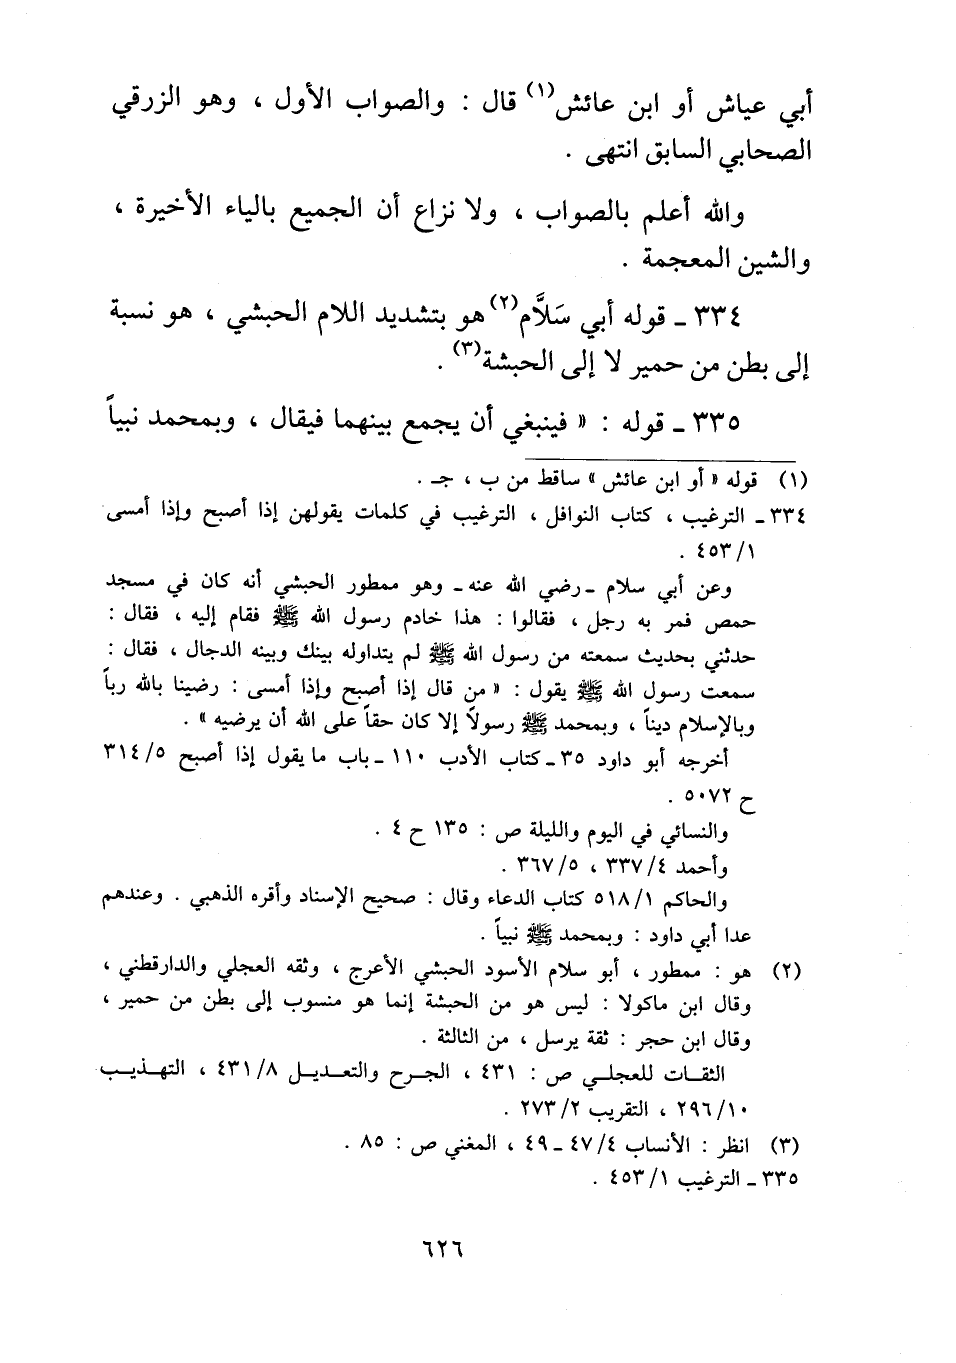 أبي عياش أو ابن عائش(١) قال : والصواب الأول ، وهو الزرقي
الصحابي السابق انتهى .
والله أعلم بالصواب ، ولا نزاع أن الجميع بالياء الأخيرة ،
والشين المعجمة .
٣٣٤ ـ قوله أبي سَلاَّم(٢) هو بتشديد اللام الحبشي ، هو نسبة
إلى بطن من حمير لا إلى الحبشة(٣) .
٣٣٥ ـ قوله : « فينبغي أن يجمع بينهما فيقال ، وبمحمد نبياً
(١) قوله « أو ابن عائش » ساقط من ب ، جـ .
٣٣٤ ـ الترغيب ، كتاب النوافل ، الترغيب في كلمات يقولهن إذا أصبح وإذا أمسى
٤٥٣/١ .
وعن أبي سلام ـ رضي الله عنه ـ وهو ممطور الحبشي أنه كان في مسجد
حمص فمر به رجل ، فقالوا : هذا خادم رسول الله ﷺ فقام إليه ، فقال :
حدثني بحديث سمعته من رسول الله ﷺ لم يتداوله بينك وبينه الدجال ، فقال :
سمعت رسول الله ﷺ يقول : « من قال إذا أصبح وإذا أمسى : رضينا بالله رباً
وبالإسلام ديناً ، وبمحمد ﷺ رسولاً إلا كان حقاً على الله أن يرضيه » .
أخرجه أبو داود ٣٥ ـ كتاب الأدب ١١٠ ـ باب ما يقول إذا أصبح ٣١٤/٥
ح ٥٠٧٢ .
والنسائي في اليوم والليلة ص : ١٣٥ ح ٤ .
وأحمد ٣٣٧/٤ ، ٣٦٧/٥ .
والحاكم ٥١٨/١ كتاب الدعاء وقال : صحيح الإسناد وأقره الذهبي . وعندهم
عدا أبي داود : وبمحمد ﷺ نبياً .
(٢) هو : ممطور ، أبو سلام الأسود الحبشي الأعرج ، وثقه العجلي والدارقطني ،
وقال ابن ماكولا : ليس هو من الحبشة إنما هو منسوب إلى بطن من حمير ،
وقال ابن حجر : ثقة يرسل ، من الثالثة .
الثقات للعجلي ص : ٤٣١ ، الجرح والتعديل ٤٣١/٨ ، التهذيب
٢٩٦/١٠ ، التقريب ٢٧٣/٢ .
(٣) انظر : الأنساب ٤٧/٤ ـ ٤٩ ، المغني ص : ٨٥ .
٣٣٥ ـ الترغيب ٤٥٣/١ .
٦٢٦